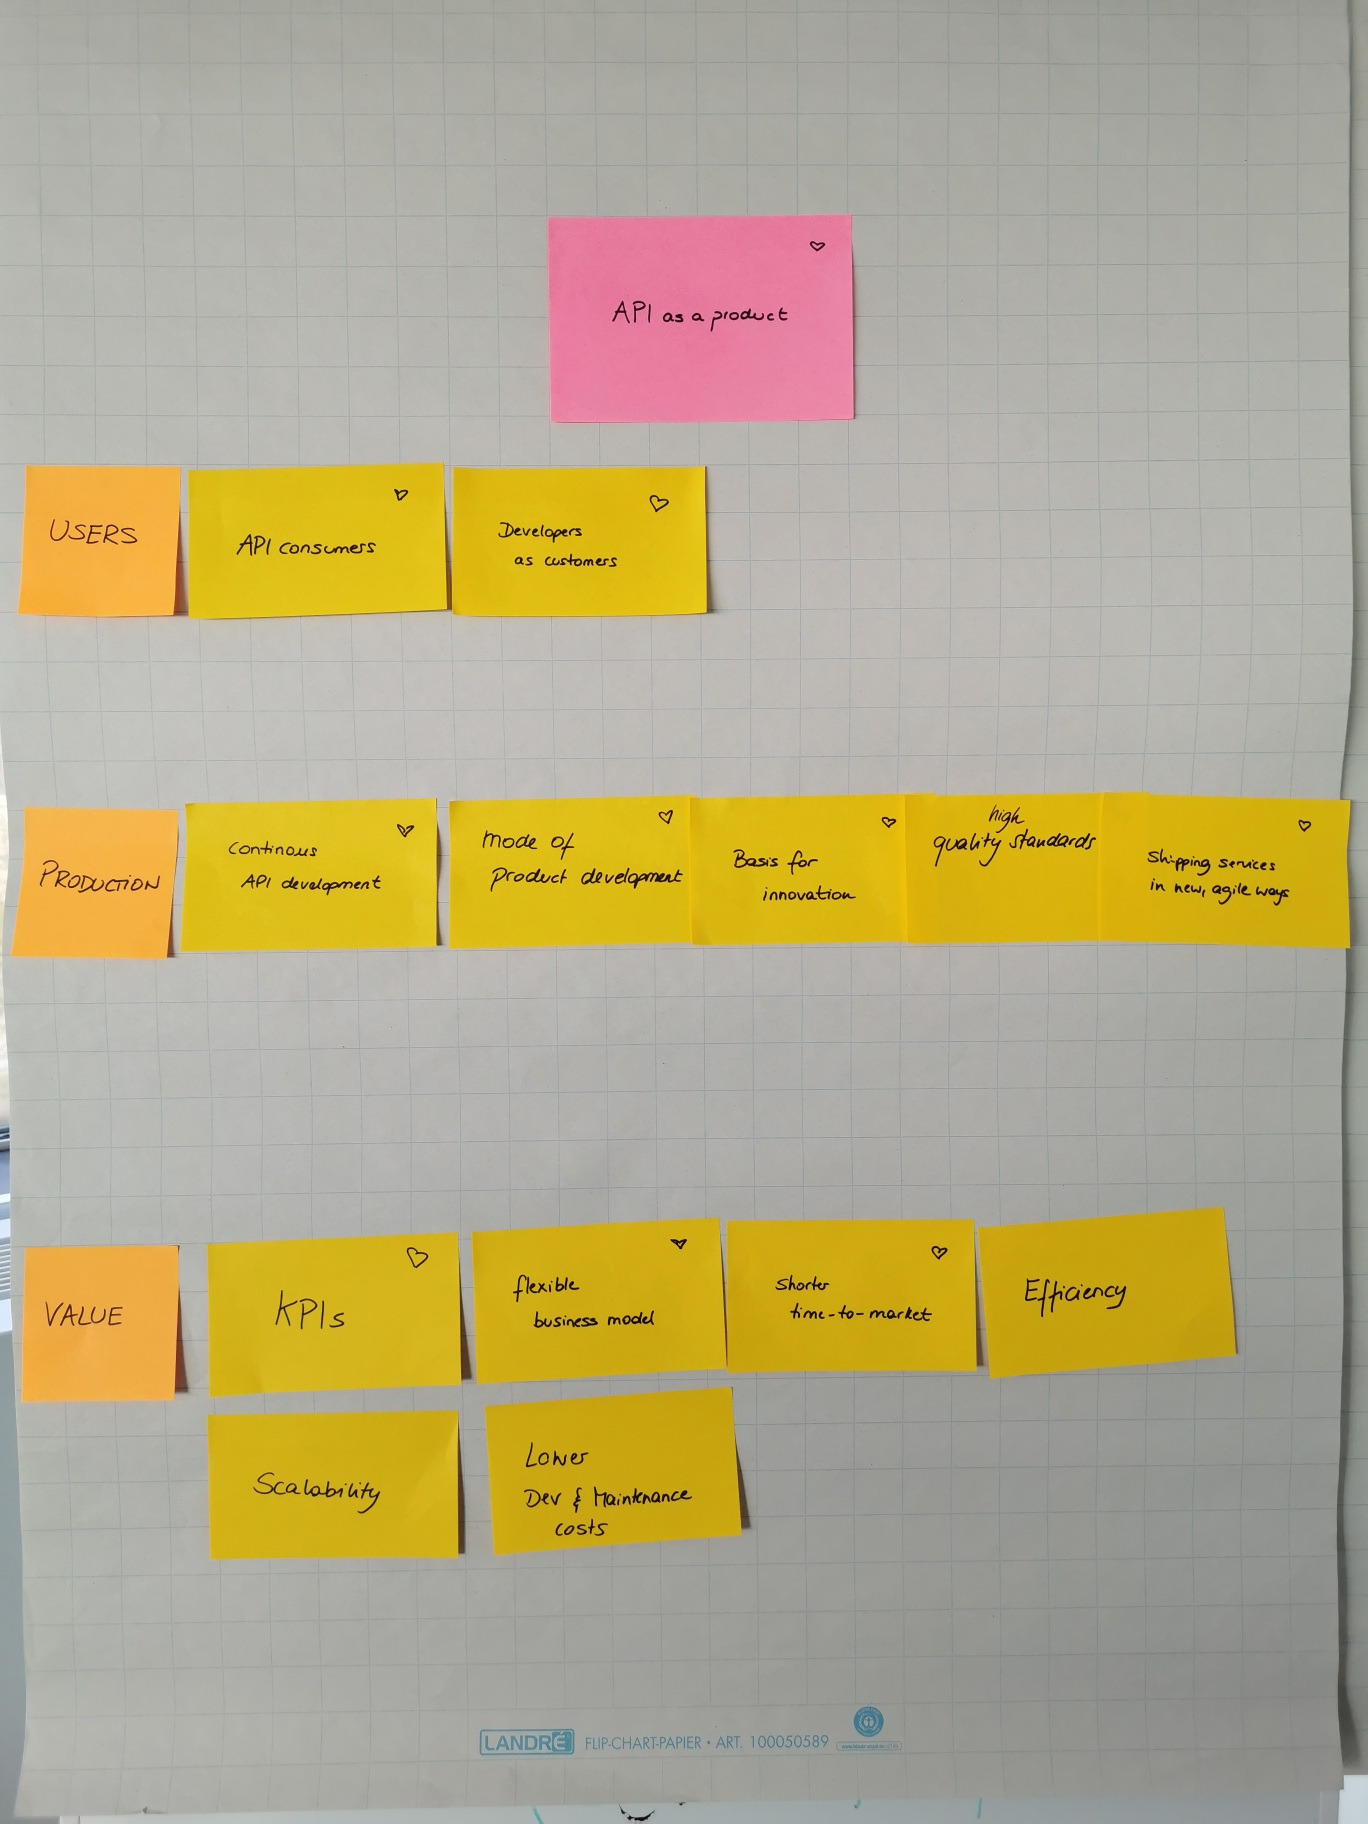 API as a product
USERS
API consumers
Developers
as customers
PRODUCTION
Continous
API development
Mode of
Product development
Basis for
innovation
high
quality standards
Shipping services
in new, agile ways
VALUE
KPIs
flexible
business model
Shorter
time-to-market
Efficiency
Scalability
Lower
Dev & Maintenance
costs
LANDRÉ FLIP-CHART-PAPIER • ART. 100050589